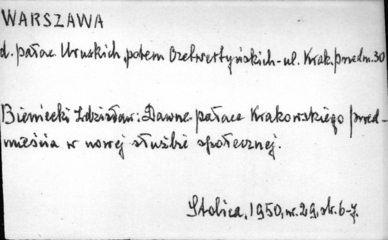 WARSZAWA
d. pałac Uruskich, potem Czetwertyńskich - ul. Krak. przedm. 30
Bieniecki Zdzisław: Dawne pałace Krakowskiego przed-
mieścia w nowej służbie społecznej.
Stolica, 1950, nr. 29, str. 6-7.